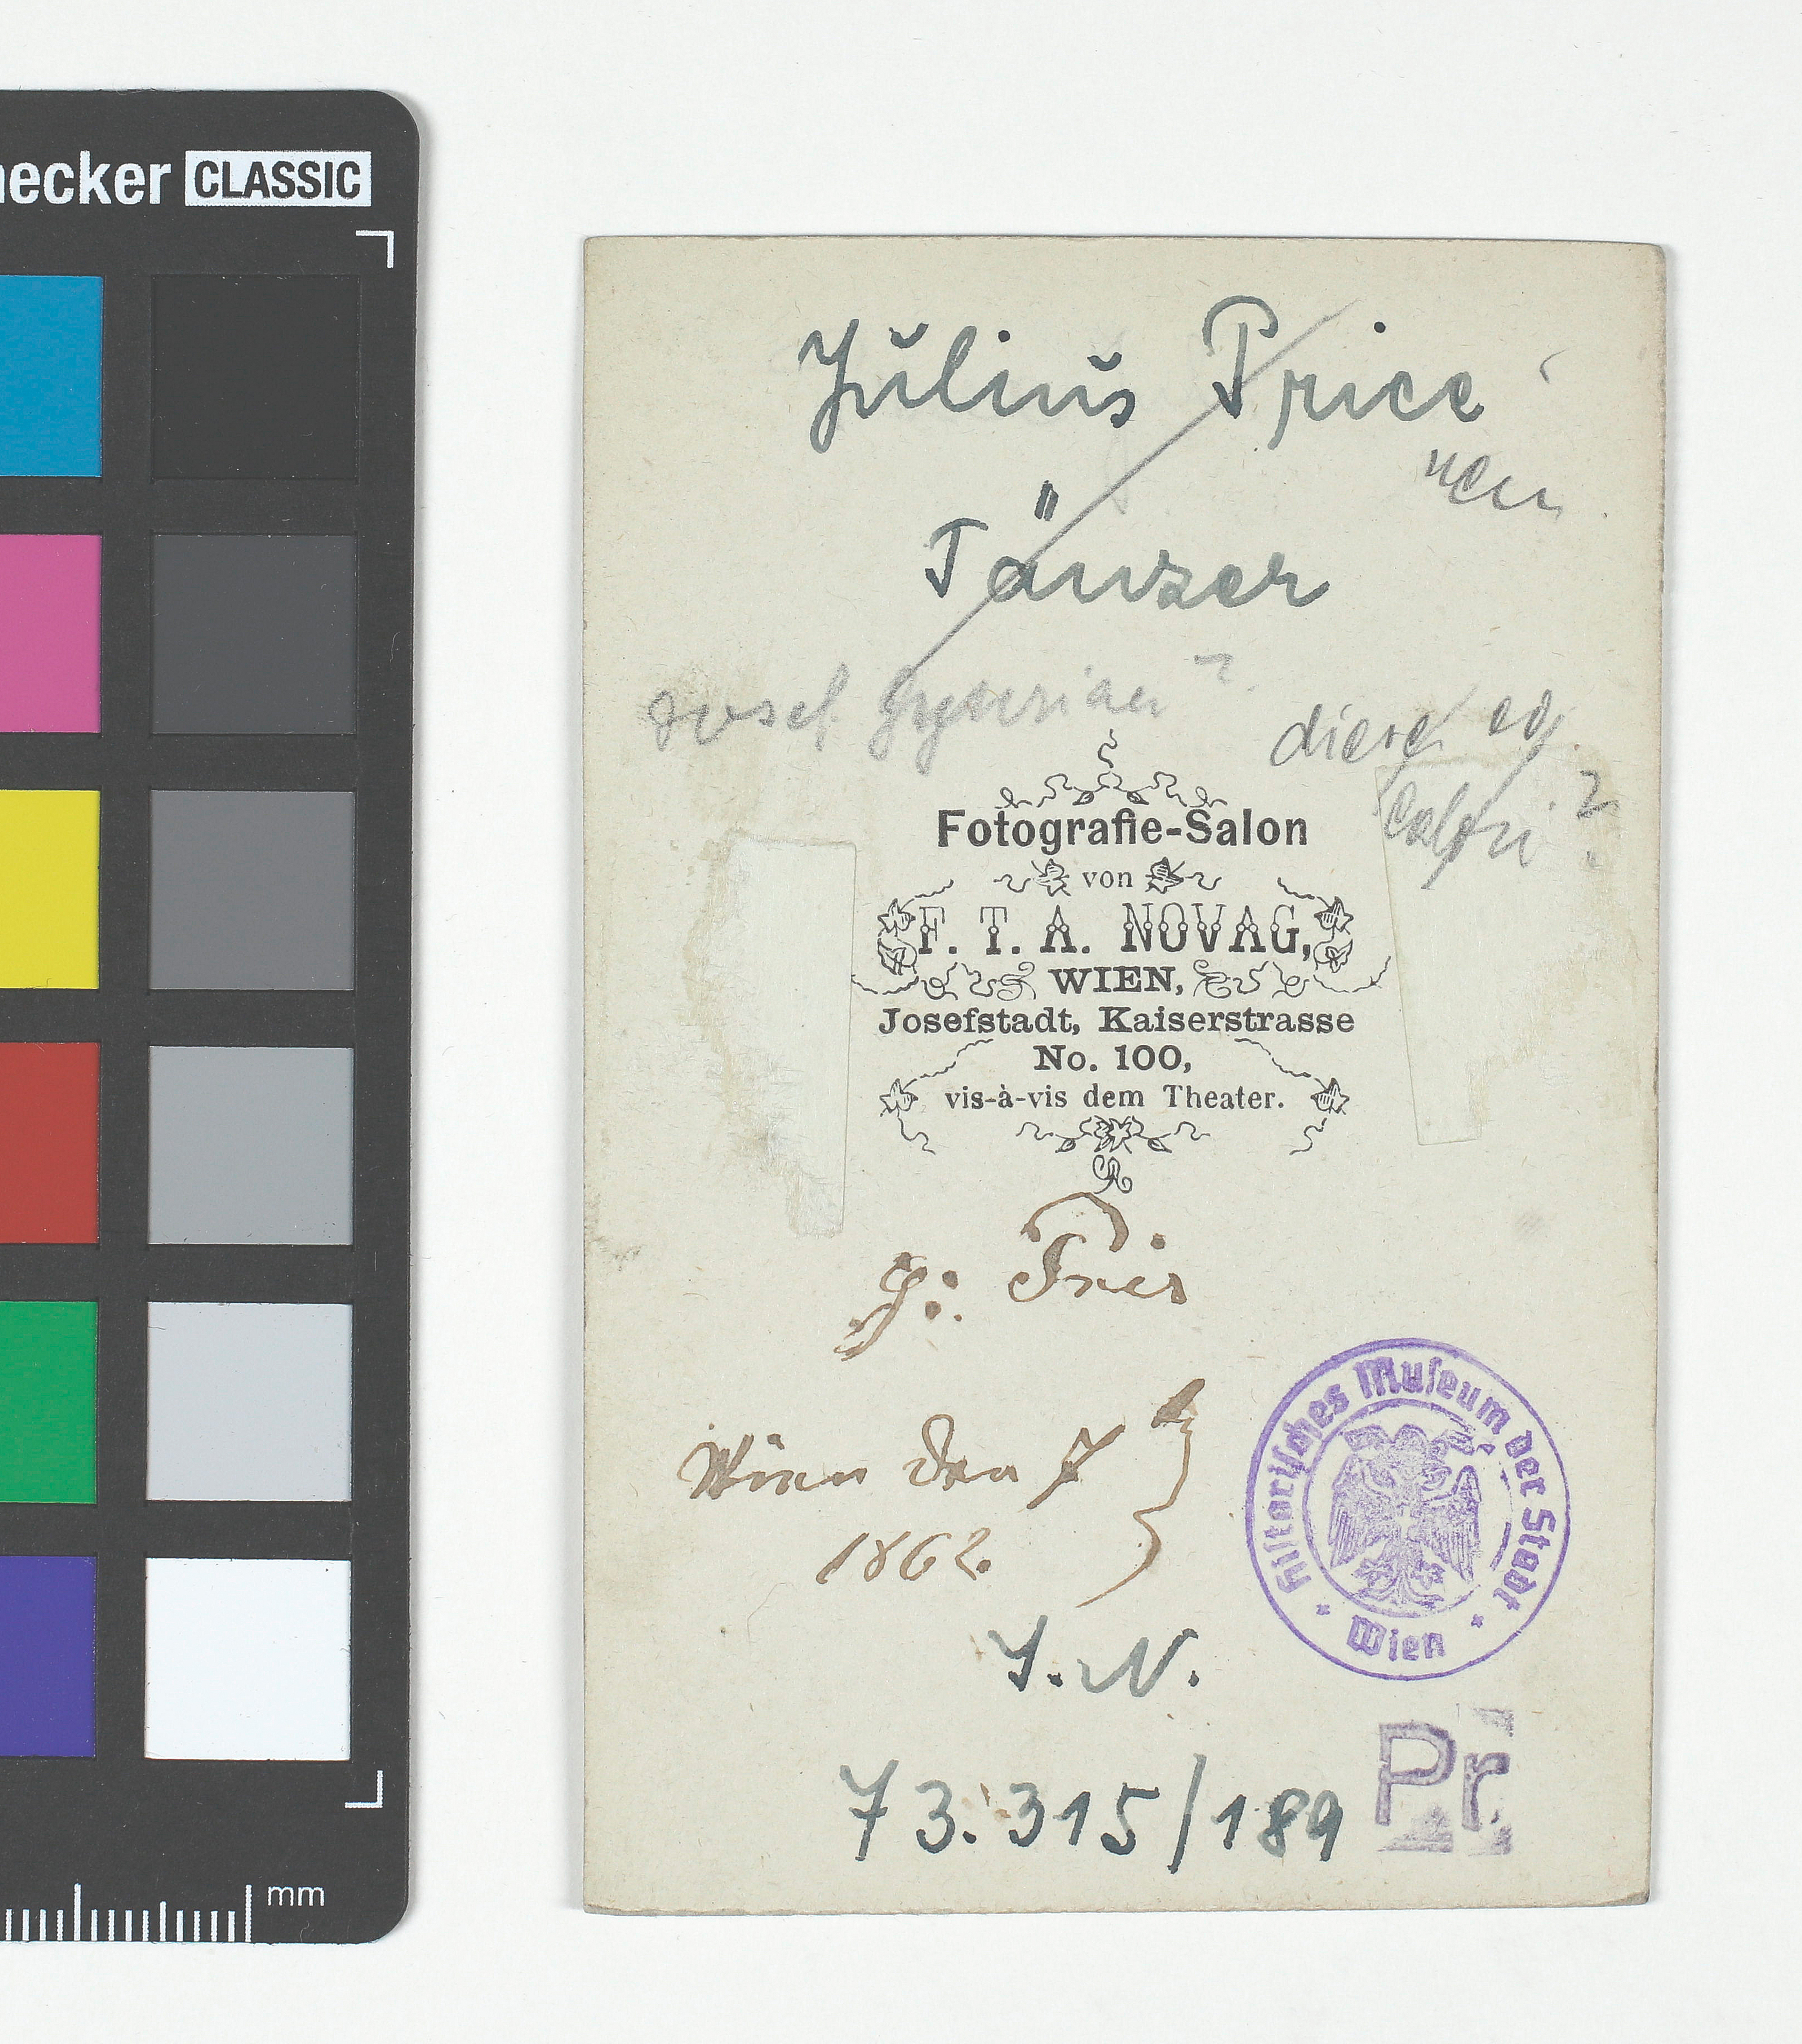 necker CLASSIC
Julius Price
Tänzer
Josef
Fotografie-Salon
von
F. T. A. NOVAG,
WIEN,
Josefstadt, Kaiserstrasse
No. 100,
vis-à-vis dem Theater.
Wien den 7
1862.
Historisches Museum der Stadt
Wien
J. N.
73.315/189
Pr
mm